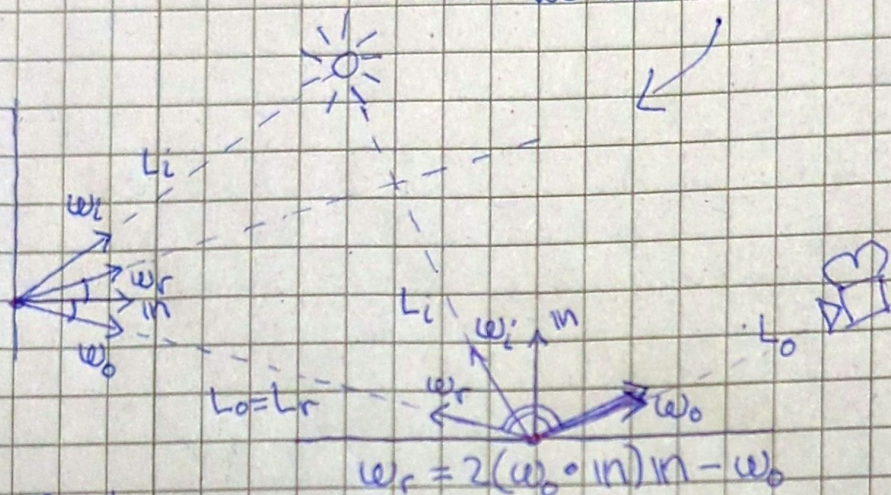 Li
ωi
ωr
n
ωo
Li
ωi
n
Lo
Lo=Lr
ωr
ωo
ωr = 2(ωo • n) n - ωo